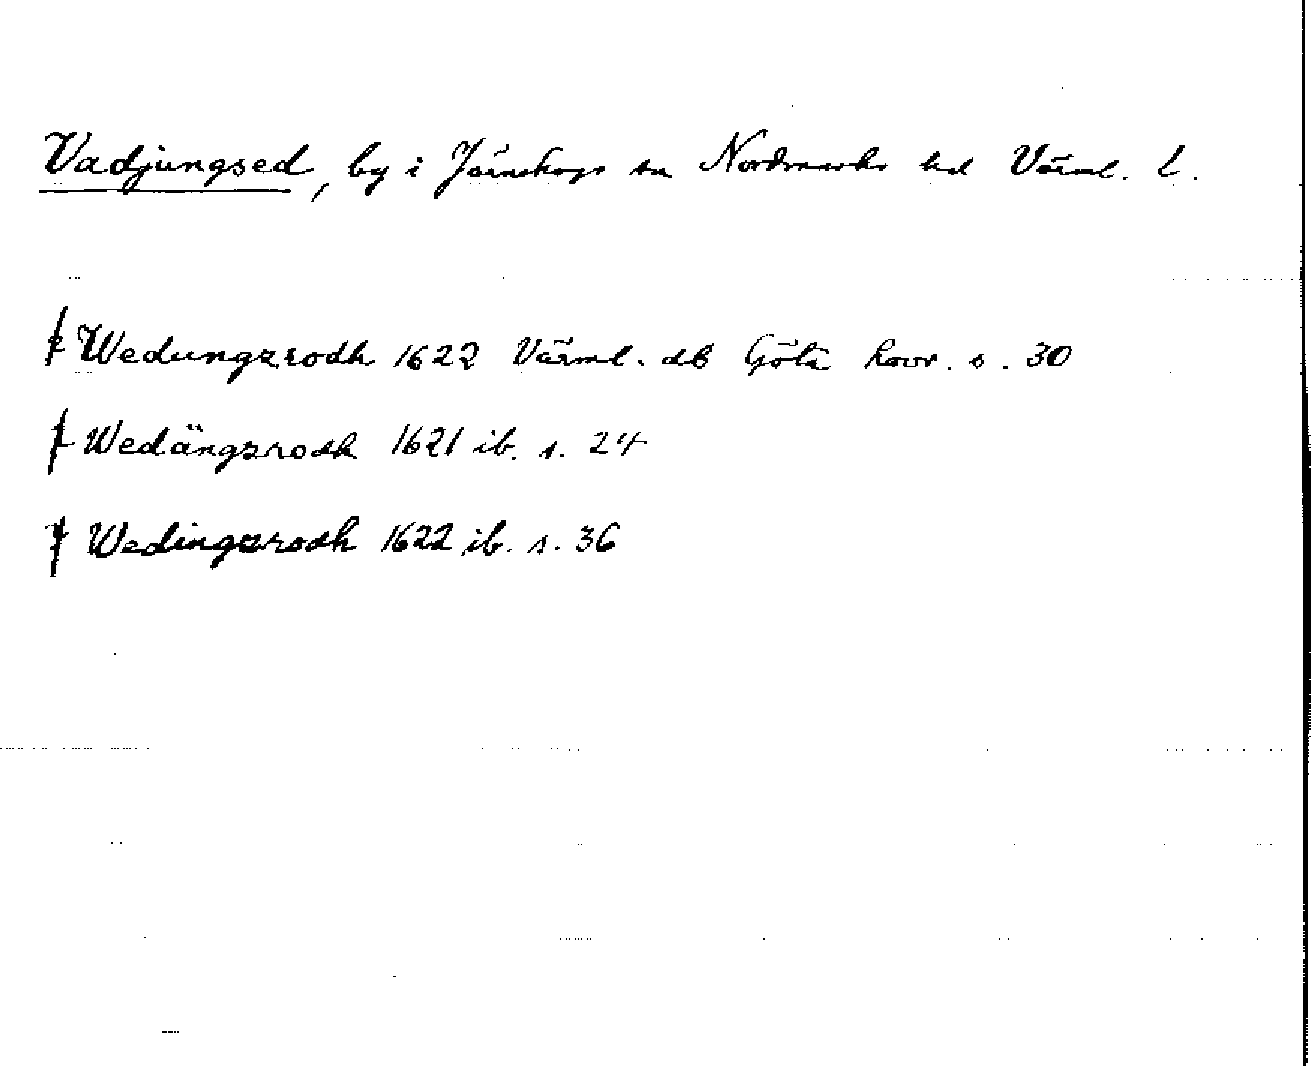 Vadjungsed, by i Järnskogs sn Nordmarks hd Värml. l.
Wedungzrodh 1622 Värml. db Göta hovr. s. 30
Wedängzrodh 1621 ib. s. 24
Wedingzrodh 1622 ib. s. 36